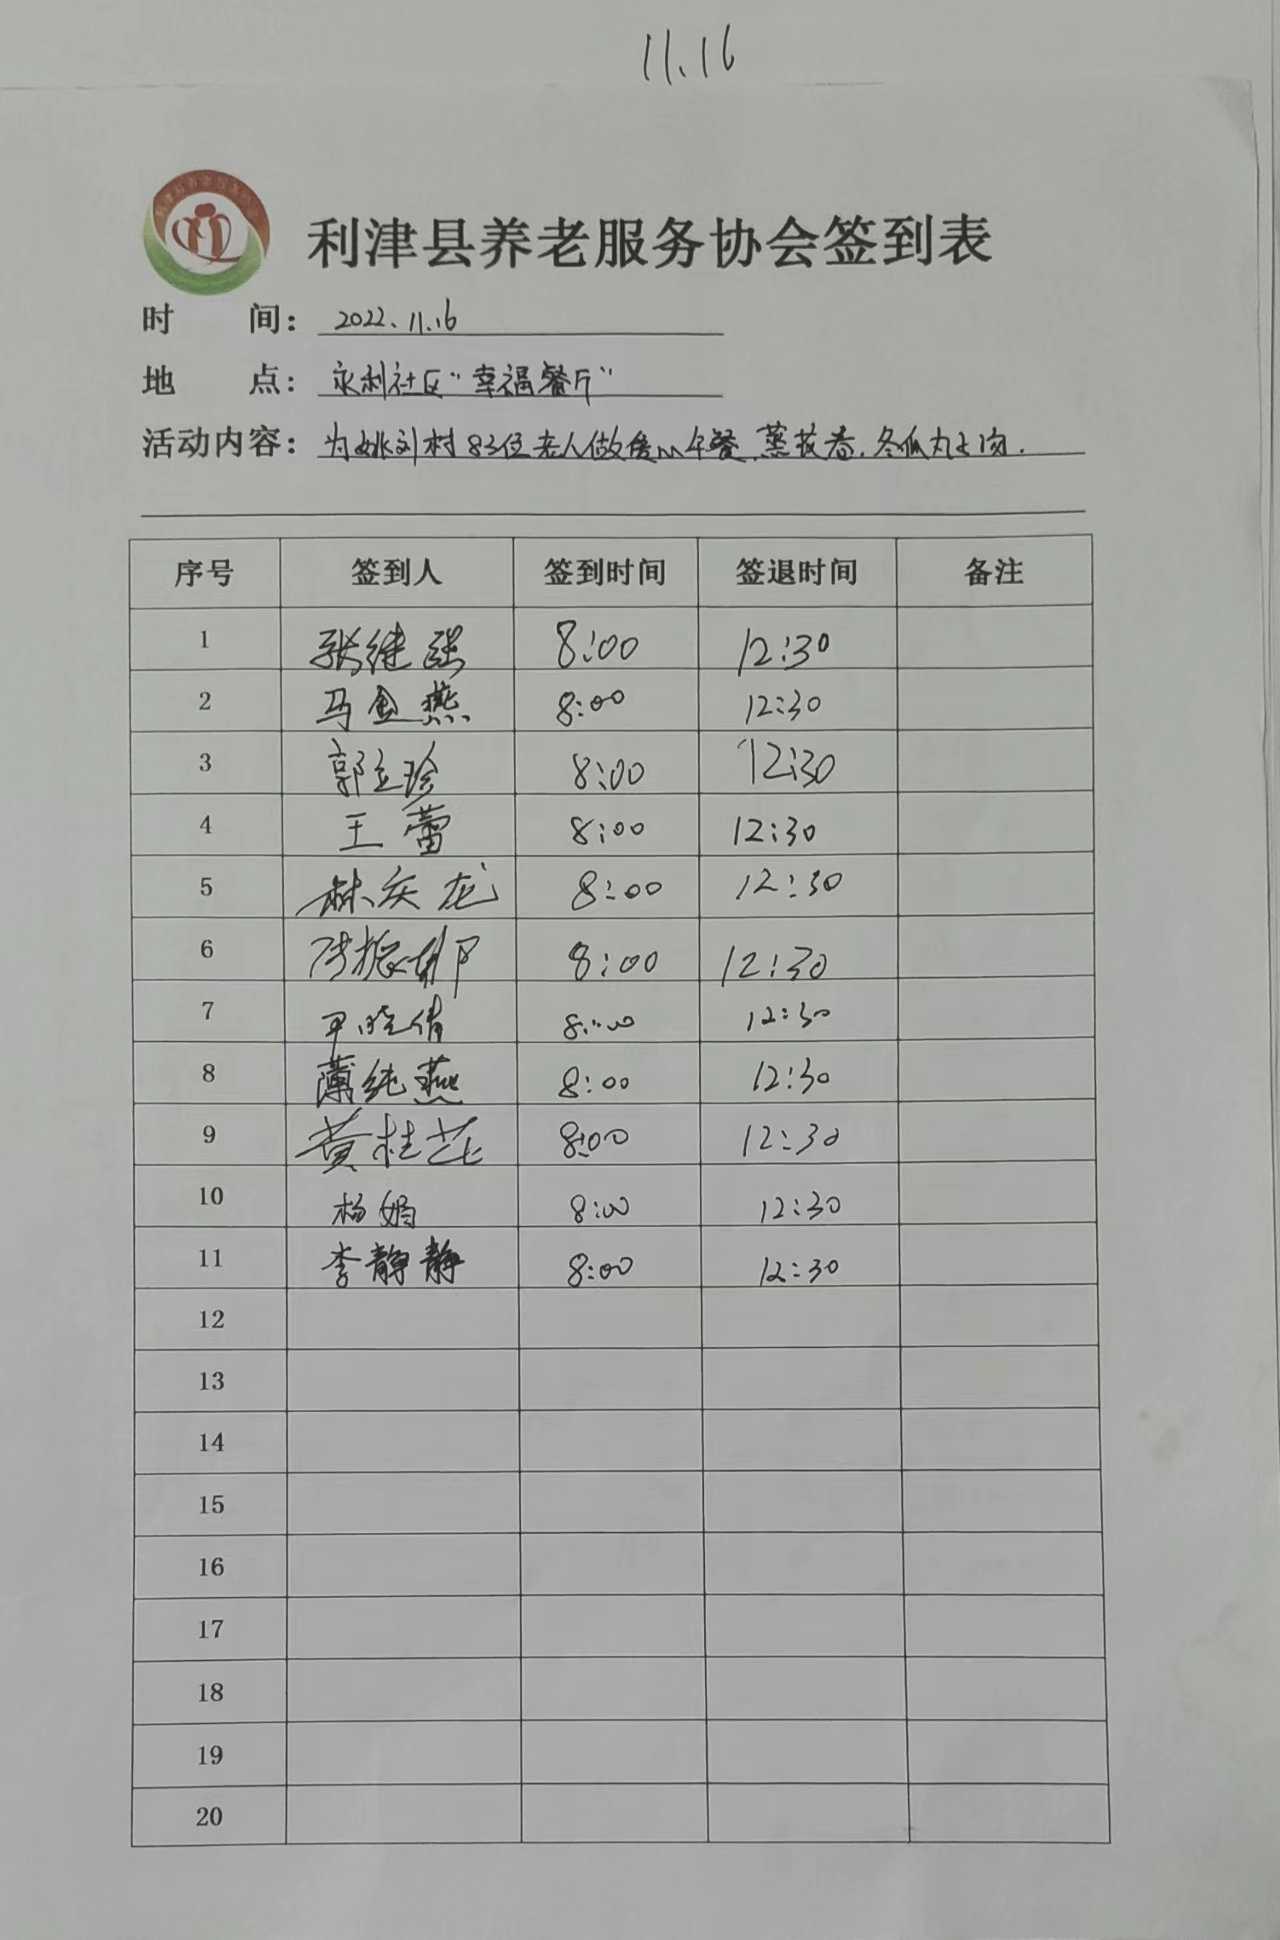 11.16
利津县养老服务协会签到表
时 间： 2022.11.16
地 点： 永利社区“幸福餐厅”
活动内容： 为姚刘村83位老人做爱心午餐.蒸花卷.冬瓜丸子汤.
序号 签到人 签到时间 签退时间 备注
1 张继强 8:00 12:30
2 马金燕 8:00 12:30
3 郭立珍 8:00 12:30
4 王蕾 8:00 12:30
5 林庆龙 8:00 12:30
6 8:00 12:30
7 尹晓倩 8:00 12:30
8 薄纯燕 8:00 12:30
9 黄桂芝 8:00 12:30
10 杨娟 8:00 12:30
11 李静静 8:00 12:30
12
13
14
15
16
17
18
19
20